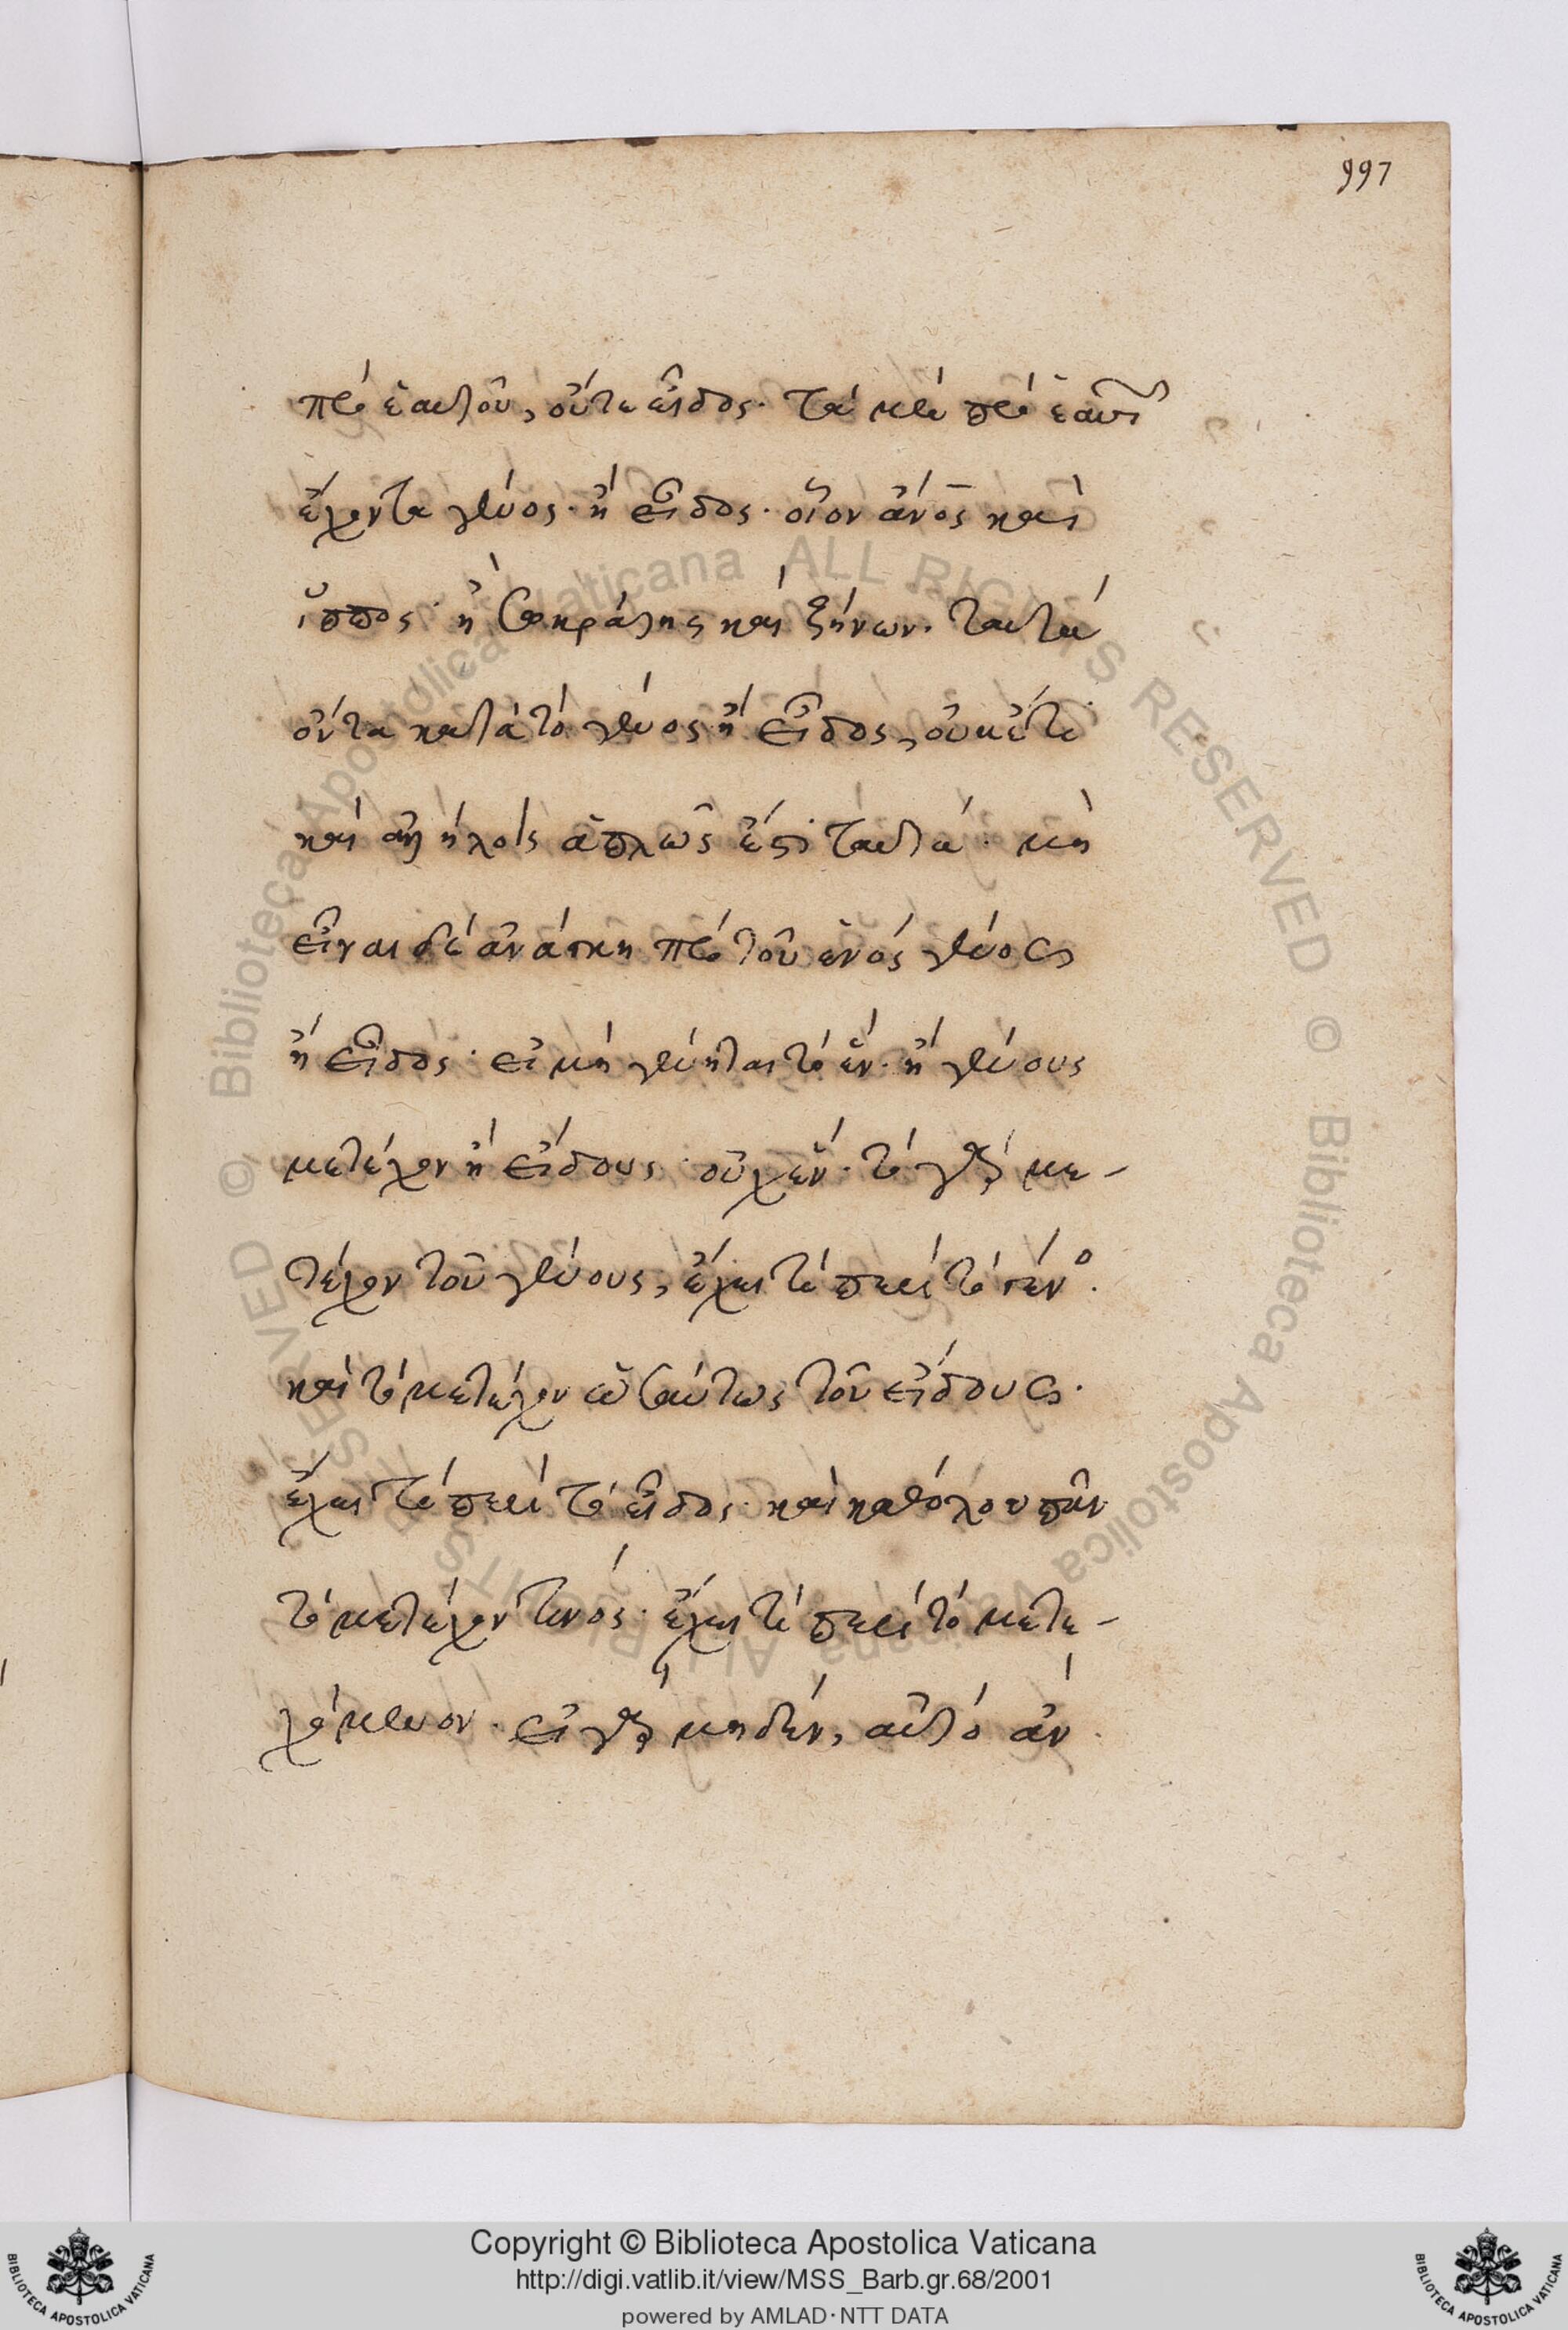 997
πρὸ ἑαυτοῦ, οὔτε εἶδος· τὰ μὲν πρὸ ἑαυτῶν
ἔχοντα γένος· ἢ εἶδος· οἷον ἄνος καὶ
ἵππος· ἢ Σωκράτης καὶ ξήνων· ταυτὰ
ὄντα κατὰ τὸ γένος ἢ εἶδος, οὐκέτι
καὶ ἀλλήλοις ἁπλῶς ἐστὶ ταυτά· μὴ
εἶναι δὲ ἀνάγκη πρὸ τοῦ ἑνὸς γένος
ἢ εἶδος· εἰ μὴ γένηται τὸ ἕν· ἢ γένους
μετέχον ἢ εἴδους· οὐχ ἕν· τὸ γὰρ με-
τέχον τοῦ γένους, ἔχει τί περὶ τὸ γένο·
καὶ τὸ μετέχον ὡσαύτως τοῦ εἴδους·
ἔχει τί περὶ τὸ εἶδος· καὶ καθόλου πᾶν
τὸ μετέχον τινός· ἔχει τί περὶ τὸ μετε-
χόμενον· εἰ γὰρ μηδέν, αὐτὸ ἂν
© Biblioteca Apostolica Vaticana ALL RIGHTS RESERVED © Biblioteca Apostolica Vaticana ALL RIGHTS RESERVED
BIBLIOTECA APOSTOLICA VATICANA
Copyright © Biblioteca Apostolica Vaticana
http://digi.vatlib.it/view/MSS_Barb.gr.68/2001
powered by AMLAD·NTT DATA
BIBLIOTECA APOSTOLICA VATICANA